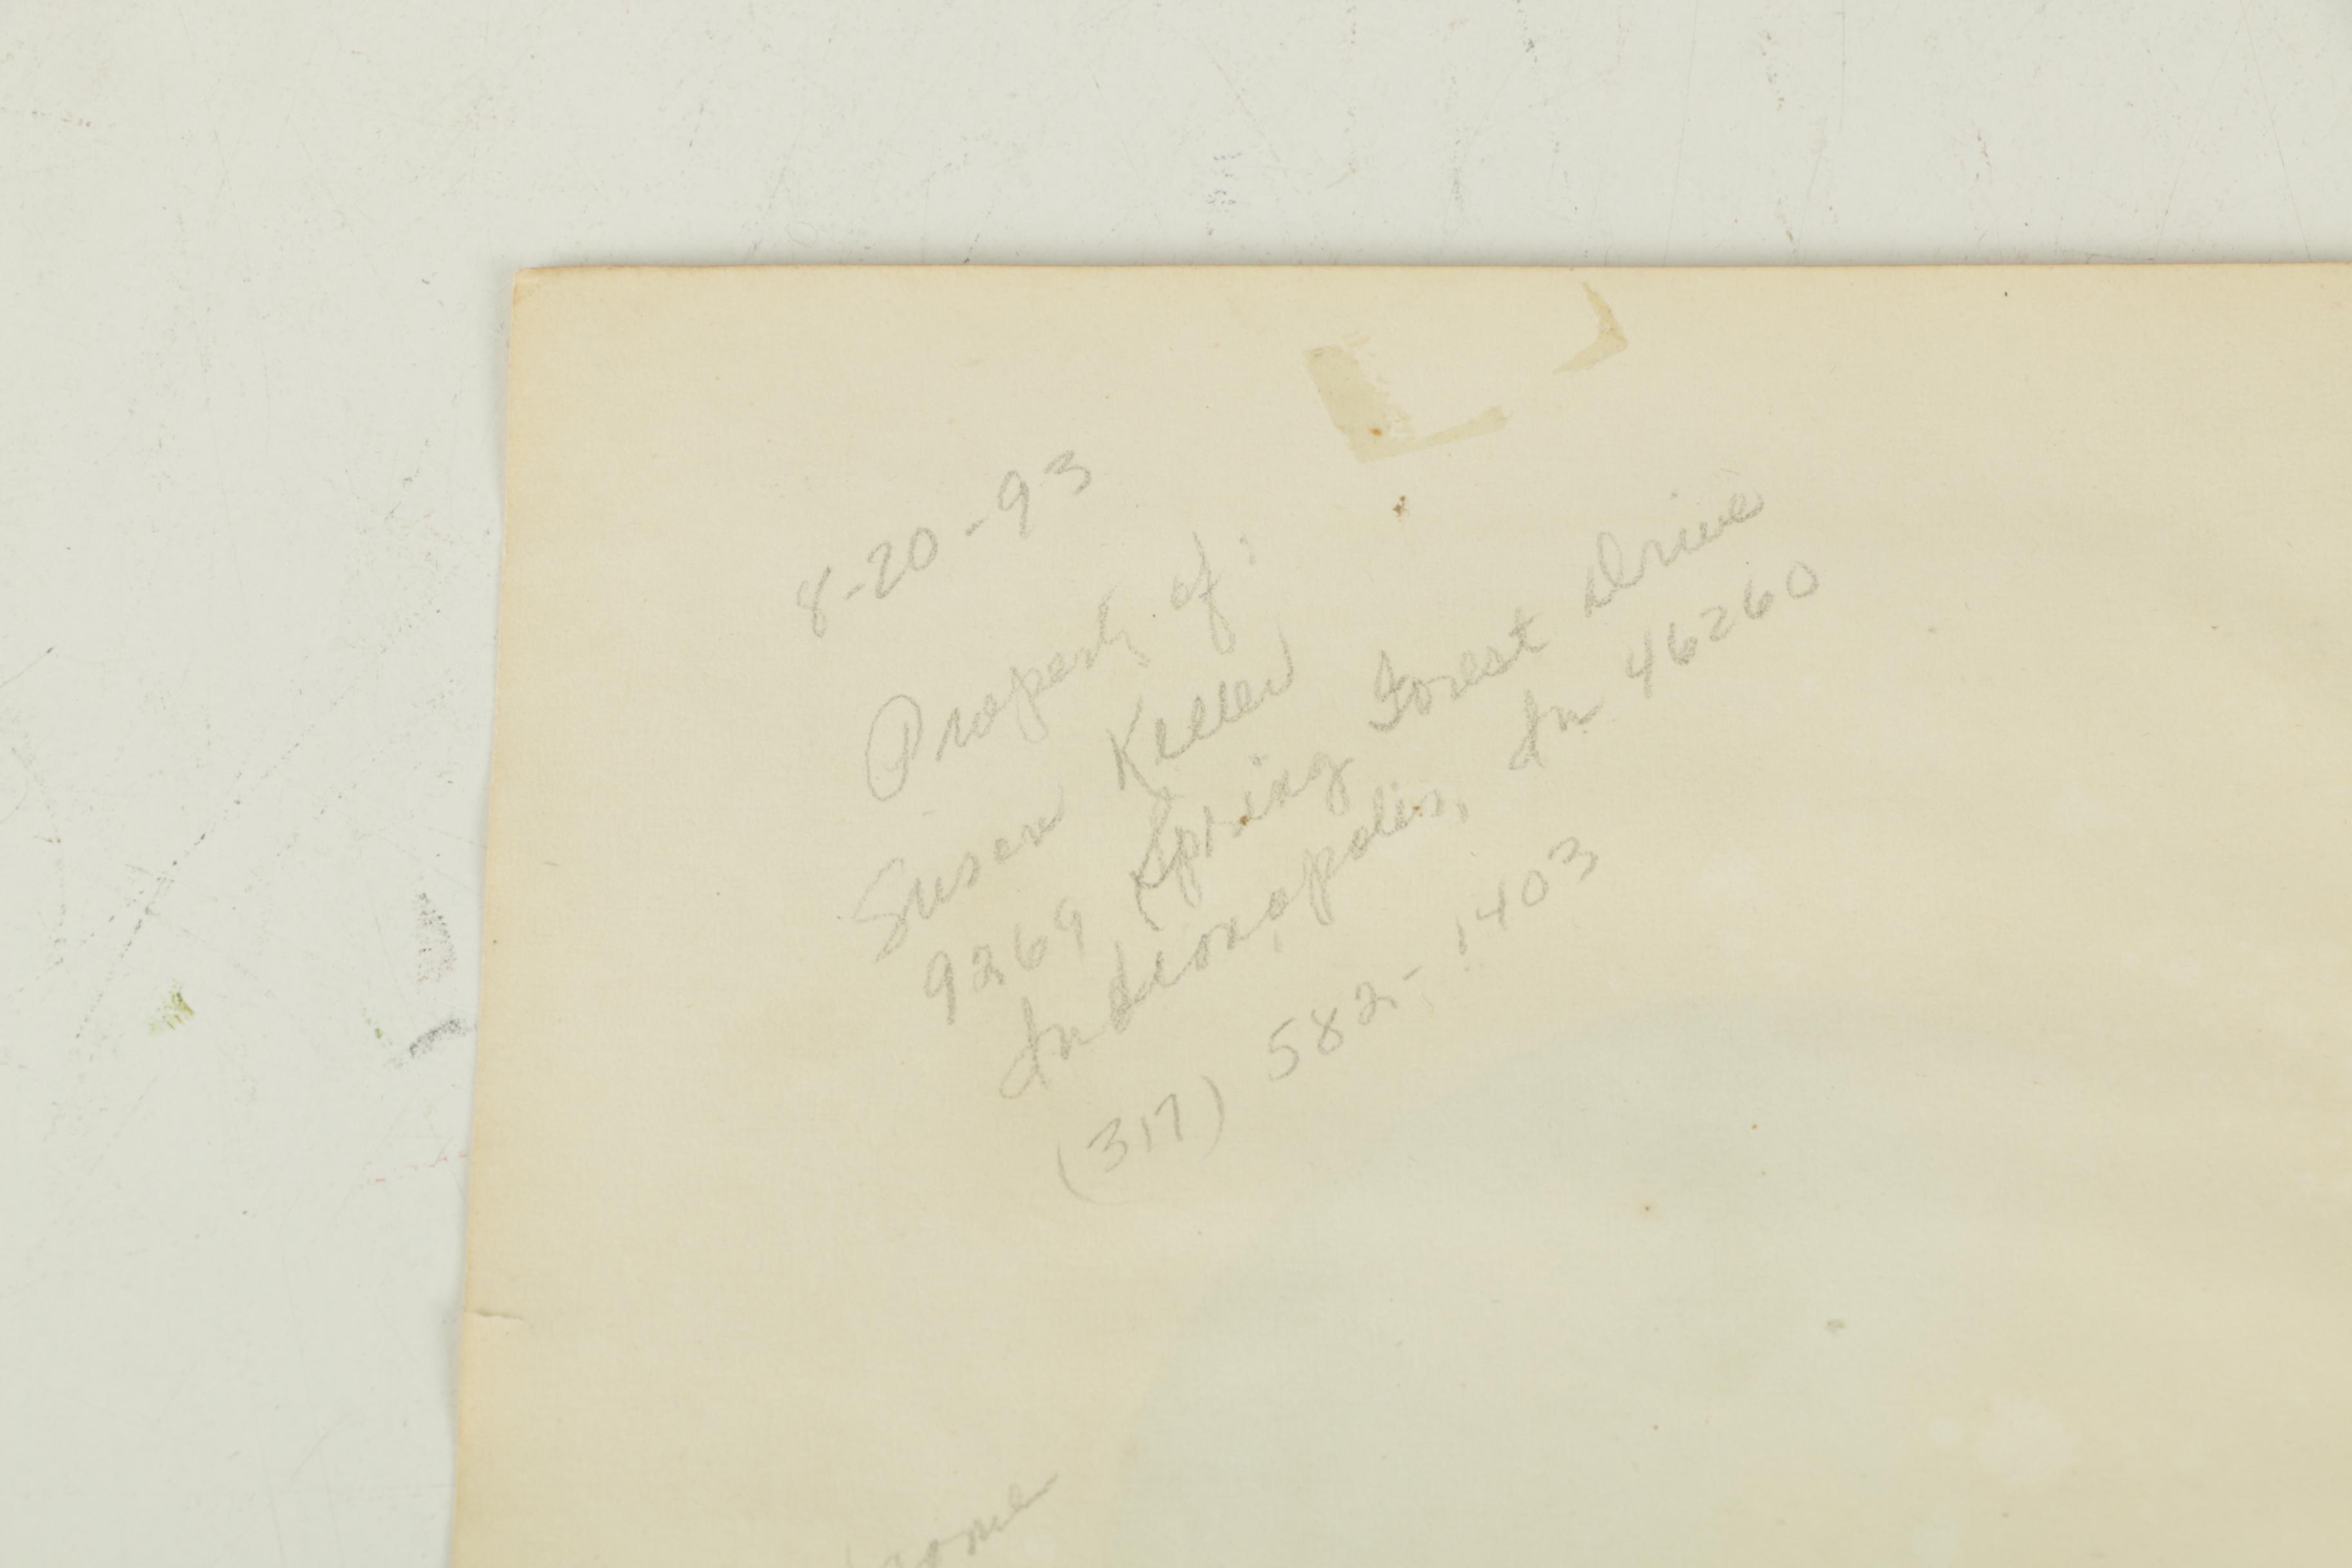 8-20-93
Property of:
Susan Keller
9269 Spring Forest Drive
Indianapolis, In 46260
(317) 582-1403